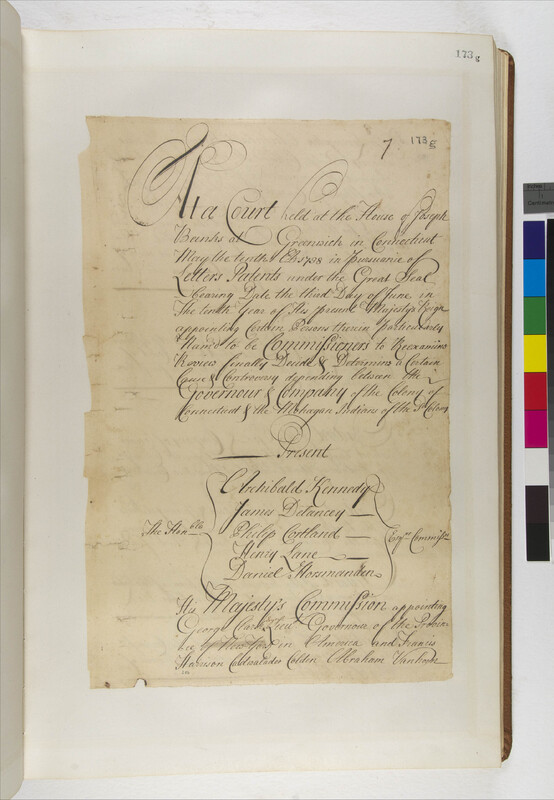 173g
7 173g
At a Court held at the House of Joseph
Banks at Greenwich in Connecticut
May the tenth 1738 in Pursuance of
Letters Patents under the Great Seal
bearing Date the third Day of June in
The tenth Year of His present Majesty's Reign
appointing Certain Persons therein Particularly
Named to be Commissioners to Reexamine
Review finally Decide & Determine a Certain
Cause & Controversy depending between the
Governour & Company of the Colony of
Connecticut & the Mohagan Indians of the Sd. Colony
Present
Archibald Kennedy
James Delancey
The Honble Philip Cortland Esqrs Commissrs
Henry Lane
Daniel Horsmanden
His Majesty's Commission appointing
George Clark Lieut Governour of the Provin
ce of New York in America and Francis
Harrison Cadwalader Colden Abraham Vanhorn